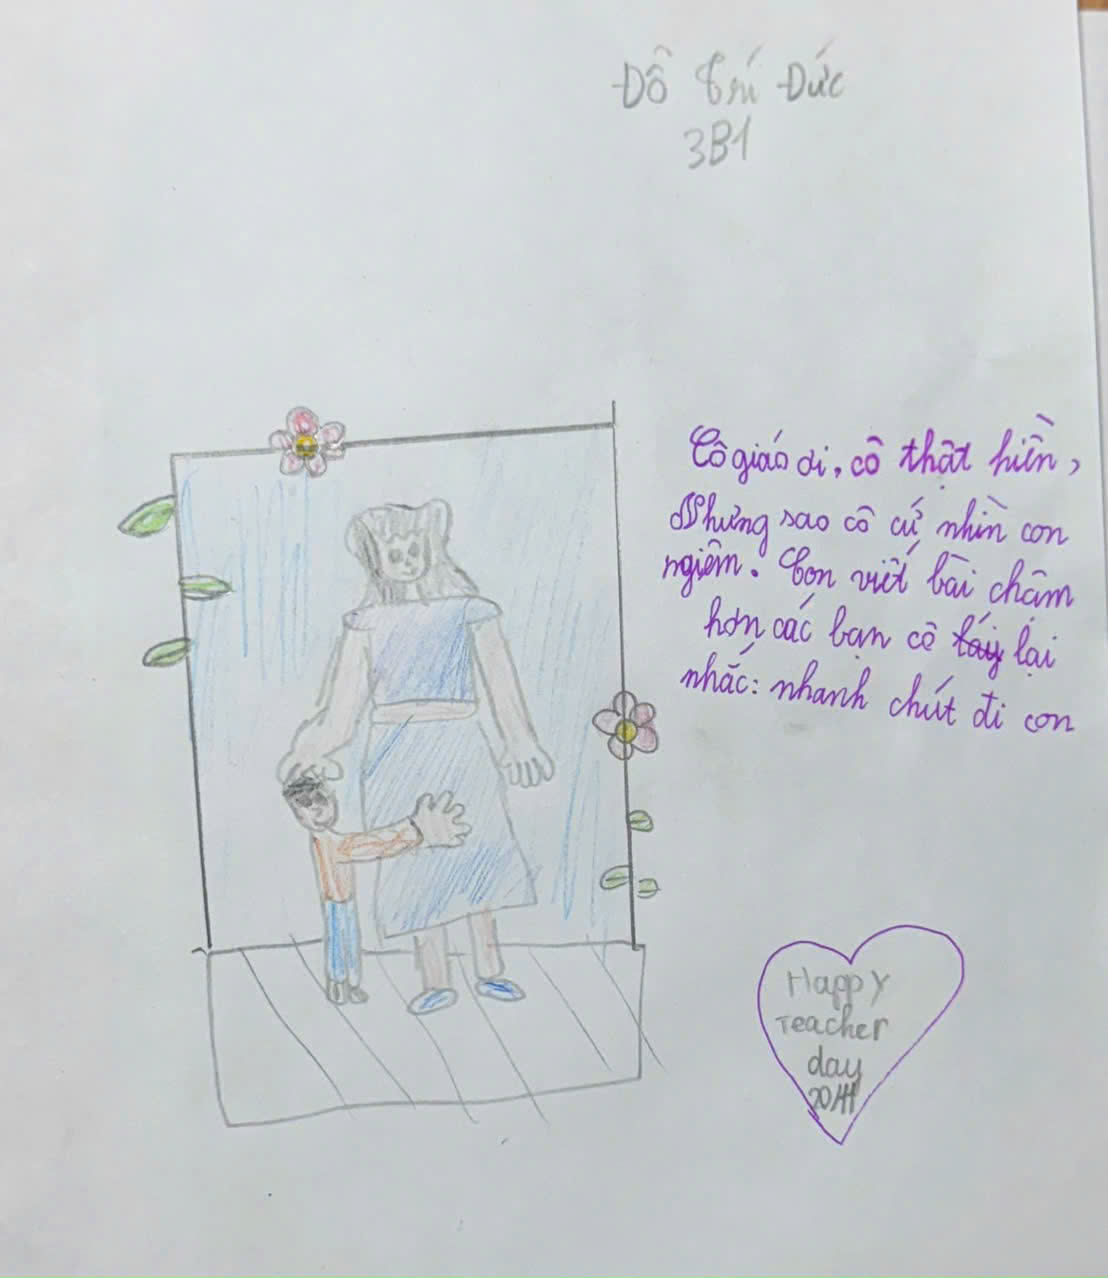 Đỗ Trí Đức
3B1
Cô giáo ơi, cô thật hiền,
Nhưng sao cô cứ nhìn con
ngiêm. Con viết bài chậm
hơn các bạn cô lại
nhắc: nhanh chút đi con
Happy
Teacher
day
20/11